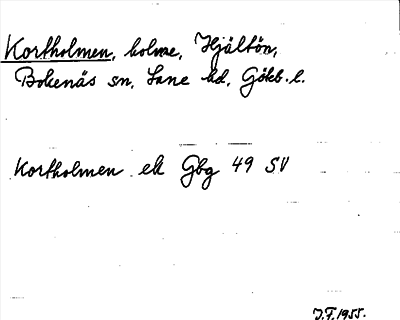 Kortholmen, holme, Hjältön,
Bokenäs sn, Lane hd, Götb. l.
Kortholmen ek Gbg 49 SV
J.F. 1955.